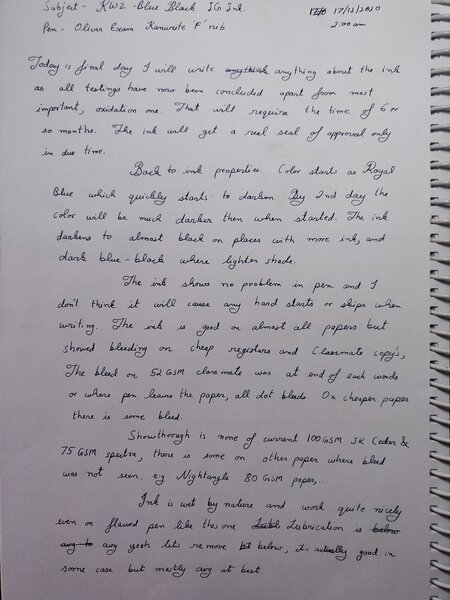 Subject - KWZ - Blue Black IG Ink. 17/12/2020
Pen - Oliver Exam Kanwrite 'F' nib. 2:00 am
Today is final day I will write anything about the ink
as all testings have now been concluded apart from most
important, oxidation one. That will require the time of 6 or
so months. The ink will get a real seal of approval only
in due time.
Back to ink properties. Color starts as Royal
Blue which quickly starts to darken. By 2nd day the
color will be much darker then when started. The ink
darkens to almost black on places with more ink, and
dark blue-black where lighter shade.
The ink shows no problem in pen and I
don't think it will cause any hard starts or skips when
writing. The ink is good on almost all papers but
showed bleeding on cheap registers and Classmate copy's,
The bleed on 52 GSM classmate was at end of each words
or where pen leaves the paper, all dot bleeds. On cheaper paper
there is some bleed.
Showthrough is none of current 100 GSM SK Cedar &
75 GSM spectra, there is some on other paper where bleed
was not seen. e.g Nightangle 80 GSM paper,...
Ink is wet by nature and work quite nicely
even on flawed pen like this one Lubrication is below
avg to avg yeah lets remove below, it actually good in
some case but mostly avg at best